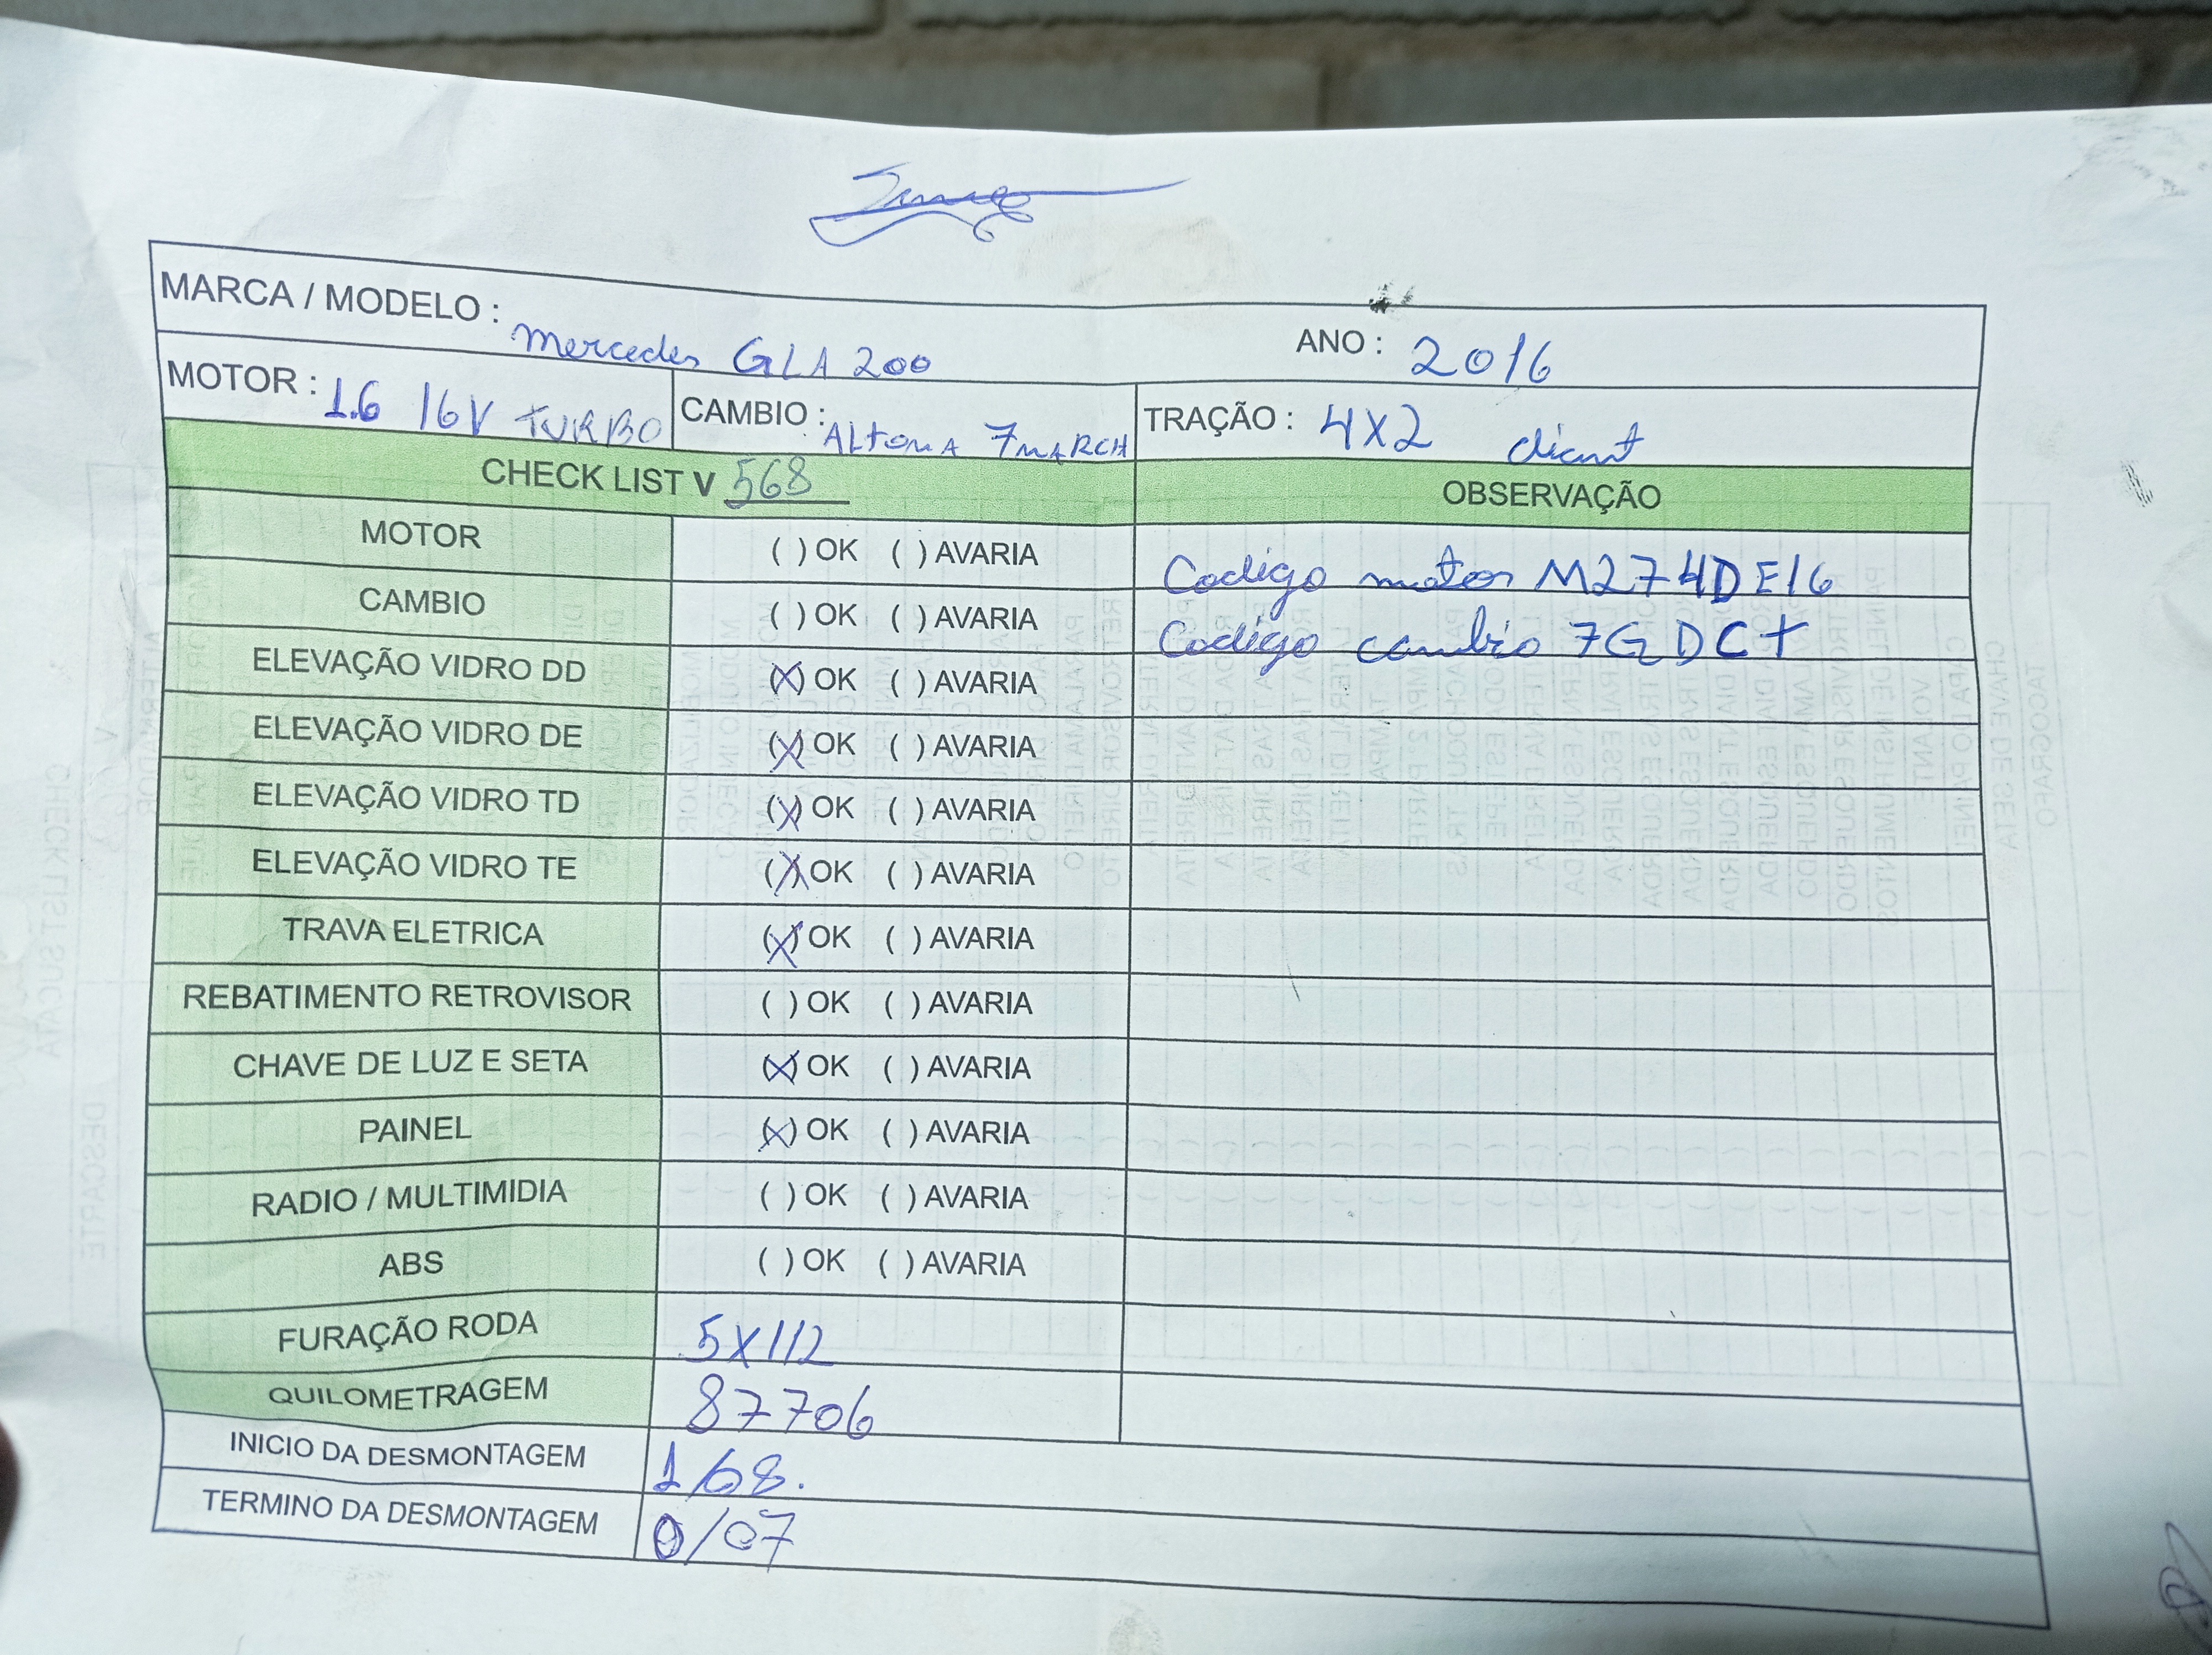 MARCA / MODELO : Mercedes GLA 200 ANO : 2016
MOTOR : 1.6 16V TURBO CAMBIO : ALtomA 7 MARCH TRAÇÃO : 4X2 diant
CHECK LIST V 568 OBSERVAÇÃO
MOTOR ( ) OK ( ) AVARIA Codigo motor M274DE16
CAMBIO ( ) OK ( ) AVARIA Codigo cambio 7G DCT
ELEVAÇÃO VIDRO DD (X) OK ( ) AVARIA
ELEVAÇÃO VIDRO DE (X) OK ( ) AVARIA
ELEVAÇÃO VIDRO TD (X) OK ( ) AVARIA
ELEVAÇÃO VIDRO TE (X) OK ( ) AVARIA
TRAVA ELETRICA (X) OK ( ) AVARIA
REBATIMENTO RETROVISOR ( ) OK ( ) AVARIA
CHAVE DE LUZ E SETA (X) OK ( ) AVARIA
PAINEL (X) OK ( ) AVARIA
RADIO / MULTIMIDIA ( ) OK ( ) AVARIA
ABS ( ) OK ( ) AVARIA
FURAÇÃO RODA 5X112
QUILOMETRAGEM 87706
INICIO DA DESMONTAGEM 1/08.
TERMINO DA DESMONTAGEM 0/07